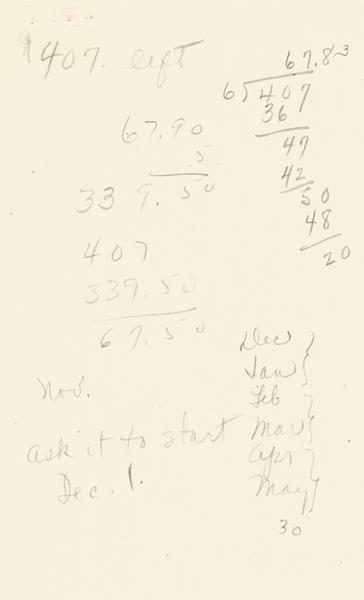 407. left
67.90
5
339.50
407
339.50
67.50
67.83
6)407
36
47
42
50
48
20
Nov.
ask it to start
Dec. 1.
Dec
Jan
Feb
Mar
Apr
May
30